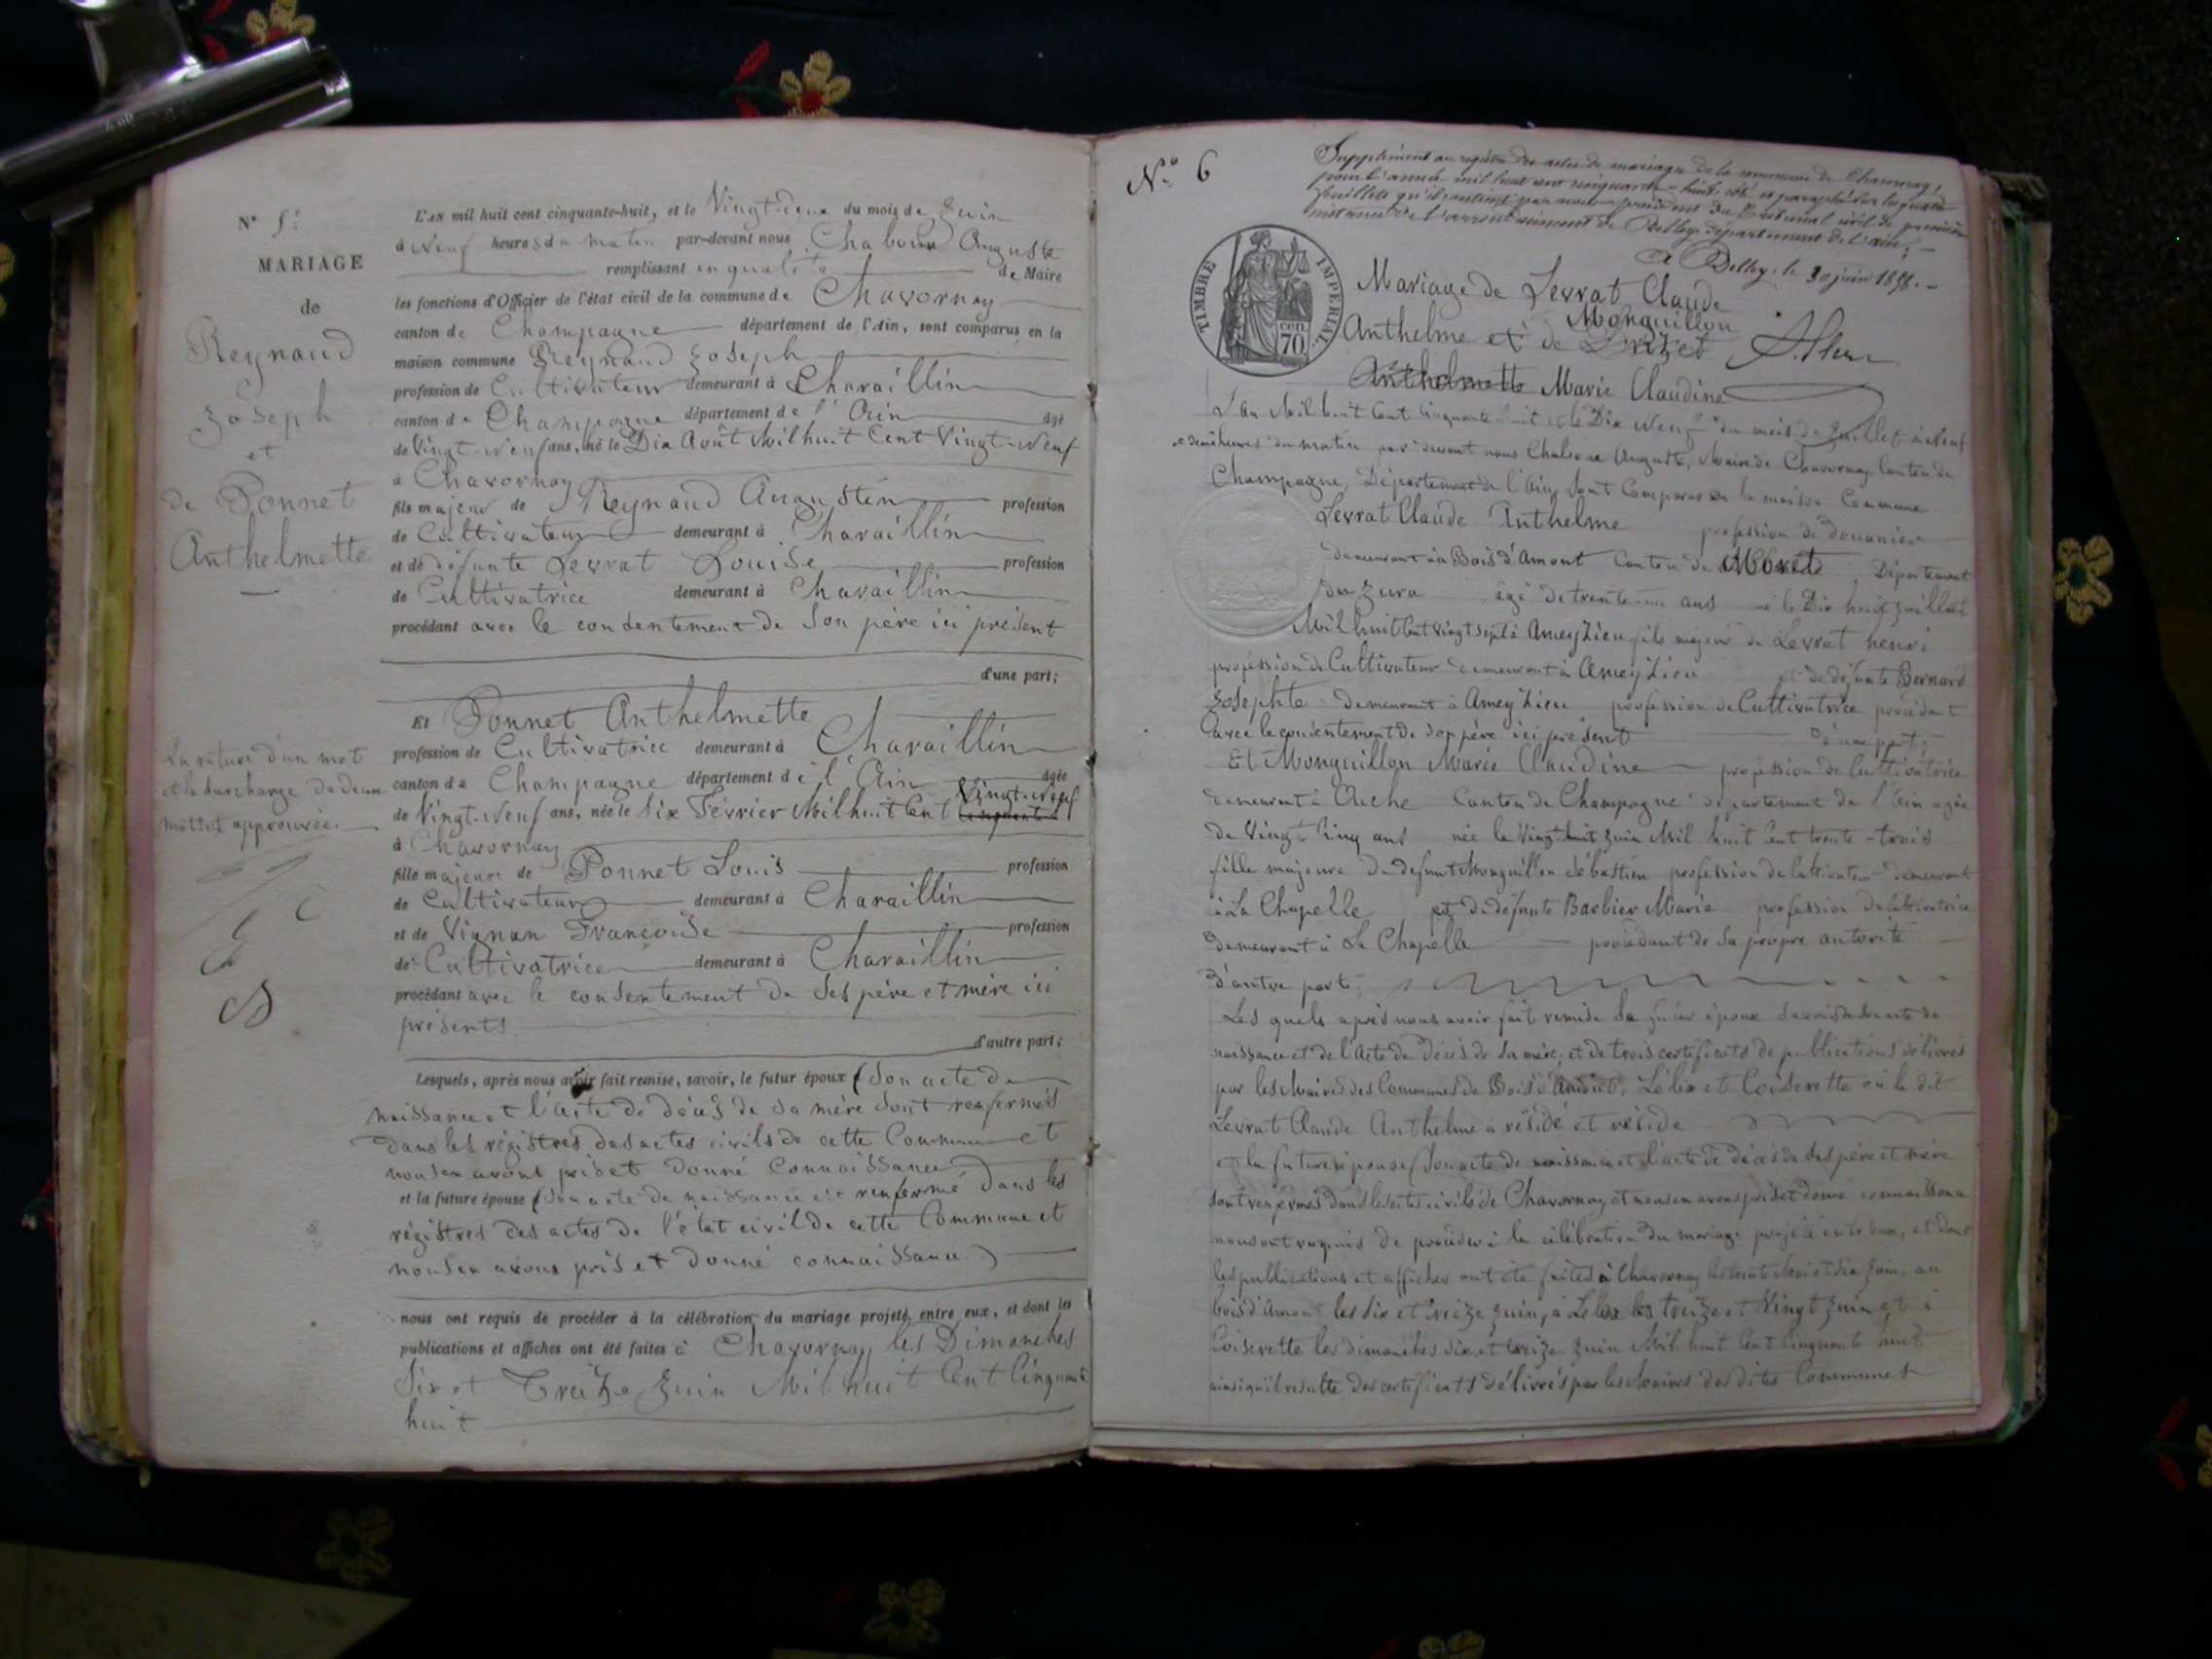 N° 5.
MARIAGE
de
Reynaud
Joseph
et
de Ponnet
Anthelmette
La rature d'un mot
et la surcharge de deux
mottes approuvée.
L'AN mil huit cent cinquante-huit, et le Vingt-deux du mois de Juin
à Neuf heures du matin par-devant nous Auguste
remplissant en qualité de Maire
les fonctions d'Officier de l'état civil de la commune de Chavornay
canton de Champagne département de l'Ain, sont comparus en la
maison commune Reynaud Joseph
profession de Cultivateur demeurant à Charaillin
canton de Champagne département de l'Ain âgé
de Vingt-neuf ans, né le Dix Août Mil huit Cent Vingt-Neuf
à Chavornay
fils majeur de Reynaud Augustin profession
de Cultivateur demeurant à Charaillin
et de défunte Levrat Louise profession
de Cultivatrice demeurant à Charaillin
procédant avec le consentement de son père ici présent
d'une part;
Et Ponnet Anthelmette
profession de Cultivatrice demeurant à Charaillin
canton de Champagne département de l'Ain âgée
Vingt-Neuf
de Vingt-Neuf ans, née le Six Février Mil huit Cent
à Chavornay
fille majeure de Ponnet Louis profession
de Cultivateur demeurant à Charaillin
et de Françoise profession
de Cultivatrice demeurant à Charaillin
procédant avec le consentement de ses père et mère ici
présents
d'autre part;
Lesquels, après nous avoir fait remise, savoir, le futur époux (Son acte de
naissance et l'acte de décès de sa mère sont renfermés
dans les régistres des actes civils de cette Commune et
nous en avons pris et donné connaissance)
et la future épouse (son acte de naissance est renfermé dans les
régistres des actes de l'état civil de cette Commune et
nous en avons pris et donné connaissance)
nous ont requis de procéder à la célébration du mariage projeté entre eux, et dont les
publications et affiches ont été faites à Chavornay les Dimanches
Six et Treize Juin Mil huit Cent Cinquante
huit
N° 6
Supplément au registre des actes de mariage de la commune de Chavornay,
pour l'année mil huit cent cinquante-huit, coté et paraphé sur
feuillets qu'il contient par nous président du tribunal civil de première
instance de l'arrondissement de Belley, département de l'ain.
A Belley, le 30 juin 1858.
TIMBRE IMPÉRIAL
70 cen
Mariage de Levrat Claude
Monguillon
Anthelme et de
Anthelmette Marie Claudine
L'an Mil huit Cent Cinquante huit et le Dix Neuf du mois de Juillet à Neuf
heures du matin par devant nous Auguste, Maire de Chavornay Canton de
Champagne, Département de l'Ain, sont Comparus en la maison Commune
Levrat Claude Anthelme profession de douanier
demeurant à Bois d'Amont Canton de Morez Département
du Jura âgé de trente-un ans né le Dix huit Juillet
Mil huit Cent vingt sept à Ameyzieu fils majeur de Levrat henri
profession de Cultivateur demeurant à Ameyzieu et de défunte Bernard
Josephte demeurant à Ameyzieu profession de Cultivatrice procédant
avec le consentement de son père ici présent d'une part;
Et Monguillon Marie Claudine profession de Cultivatrice
demeurant à Canton de Champagne département de l'Ain agée
de Vingt Cinq ans née le Vingt huit Juin Mil huit Cent trente-trois
fille majeure de défunt Monguillon Sébastien profession de Cultivateur demeurant
à La Chapelle et de défunte Barbier Marie profession de Cultivatrice
demeurant à La Chapelle procédant de sa propre autorité
d'autre part;
Les quels après nous avoir fait remise le futur époux de son acte de
naissance et de l'acte de décès de sa mère, et de trois certificats de publications délivrés
par les Maires des Communes de Bois d'Amont, Lélex et Coiserette où le dit
Levrat Claude Anthelme a résidé et réside
et la future épouse (Son acte de naissance et l'acte de décès de ses père et mère
sont renfermés dans les actes civils de Chavornay et nous en avons pris et donné connaissance
nous ont requis de procéder à la célébration du mariage projeté entre eux, et dont
les publications et affiches ont été faites à Chavornay Juin, au
bois d'Amont les six et treize Juin, à Lélex les treize et Vingt Juin et à
Coiserette les dimanches six et treize Juin Mil huit Cent Cinquante huit
ainsi qu'il résulte des certificats délivrés par les Maires des dites Communes